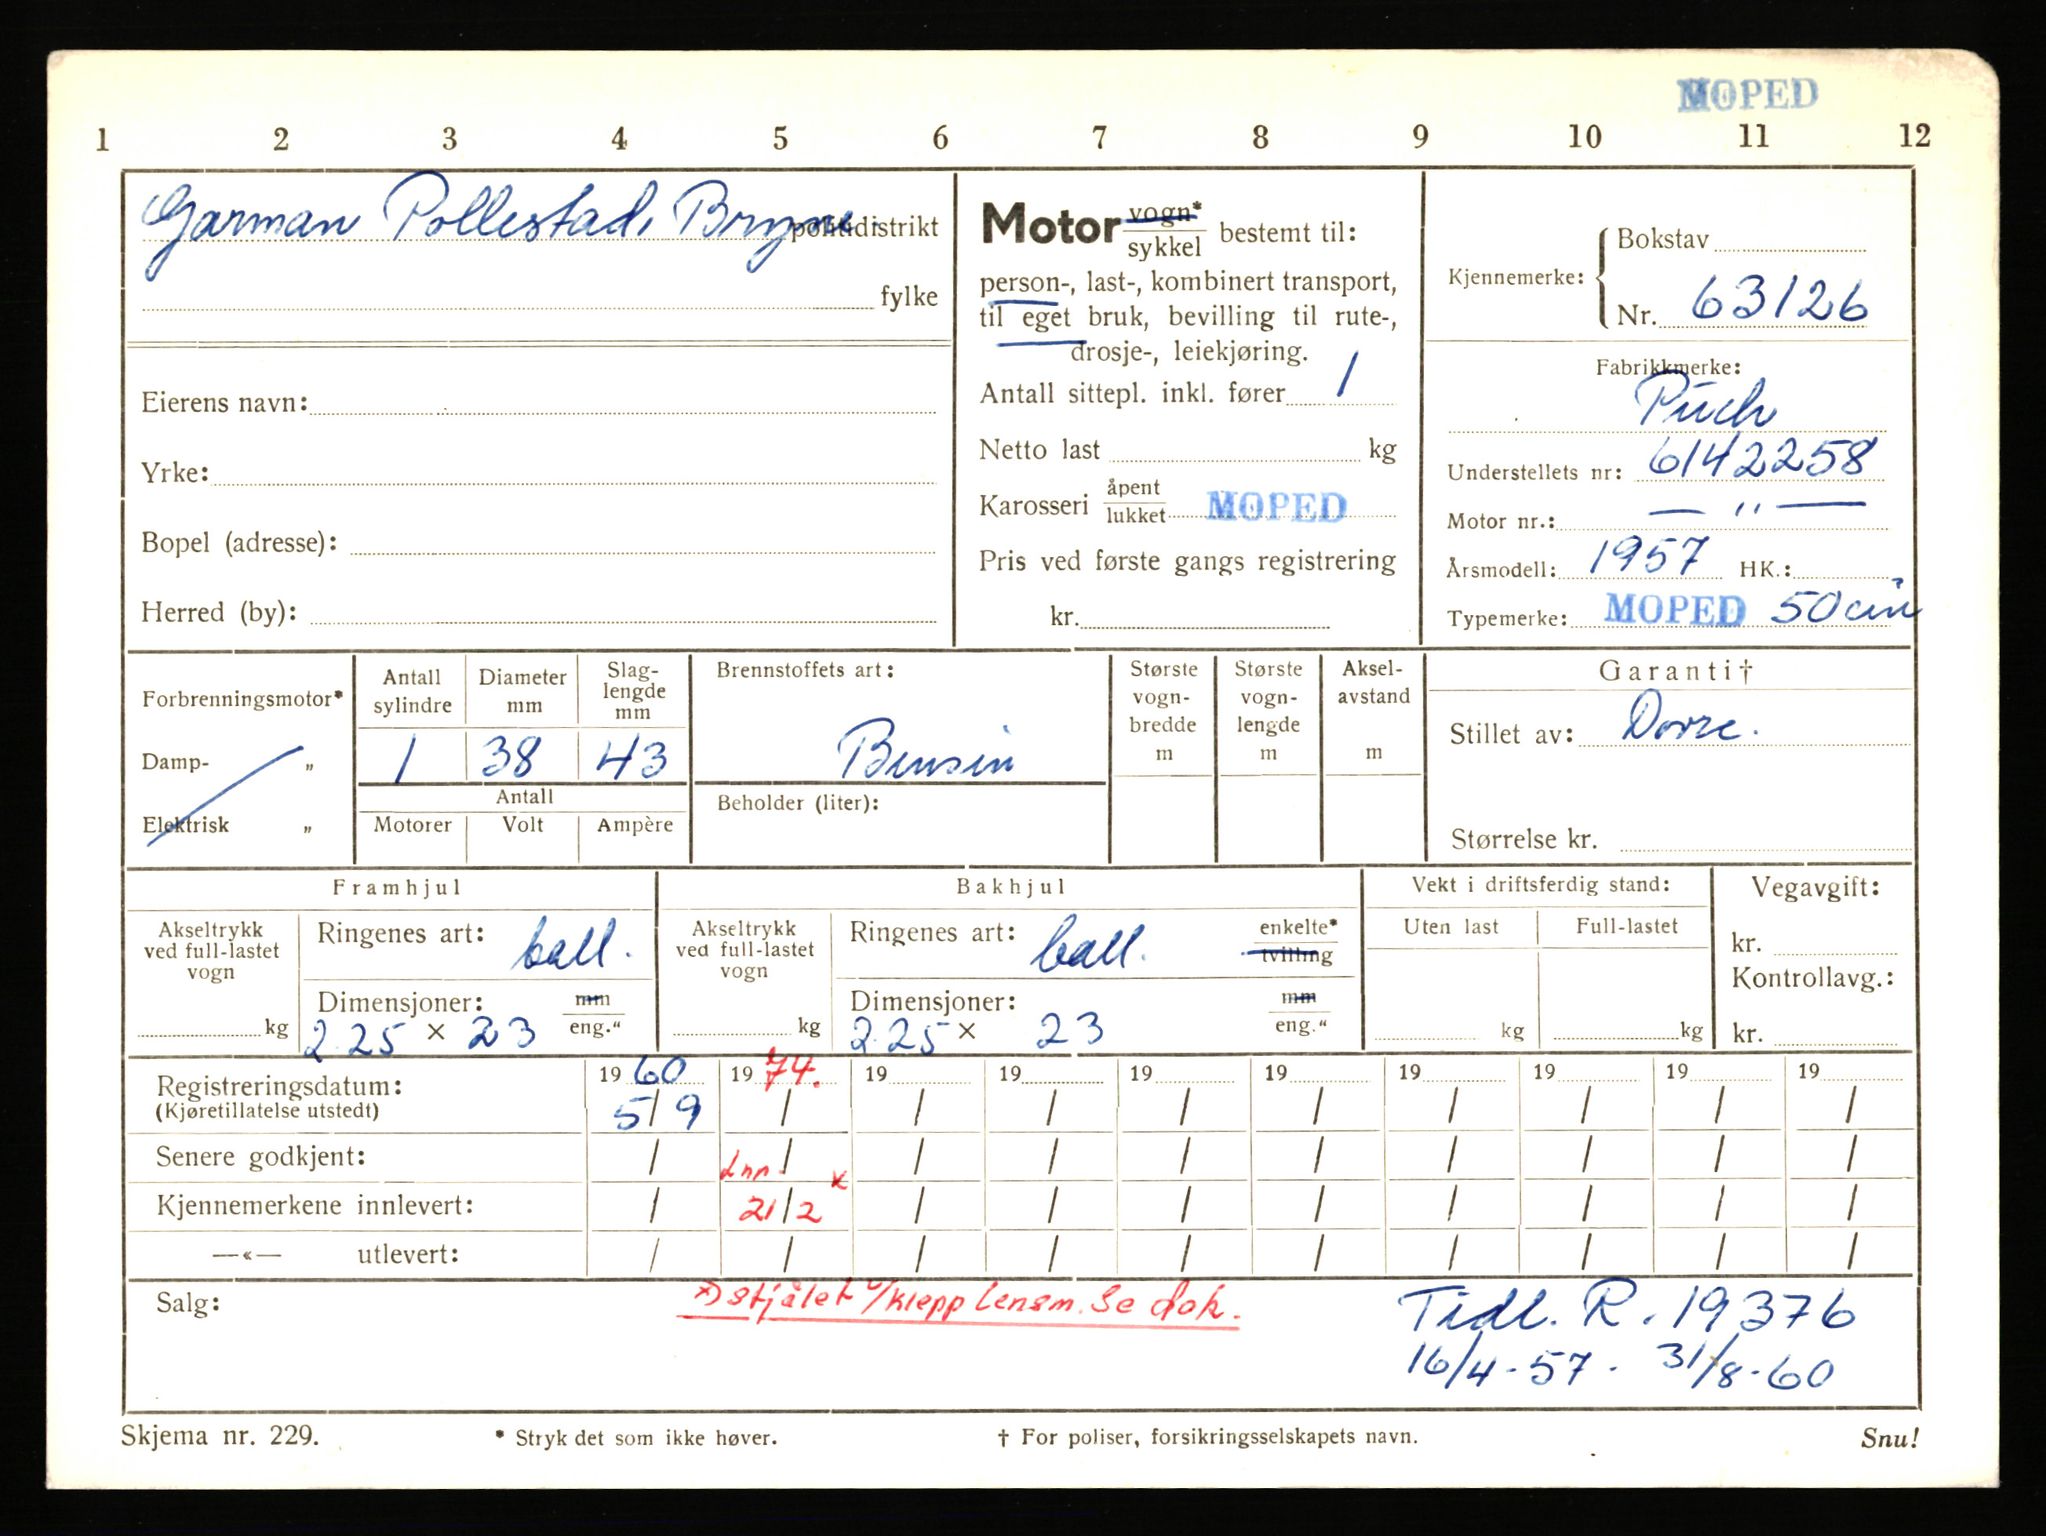 MOPED
1 2 3 4 5 6 7 8 9 10 11 12
Garman Pollestad, Bryne. politidistrikt
fylke
Eierens navn:
Yrke:
Bopel (adresse):
Herred (by):
Motor vogn* / sykkel bestemt til:
person-, last-, kombinert transport,
til eget bruk, bevilling til rute-,
drosje-, leiekjøring.
Antall sittepl. inkl. fører 1
Netto last kg
Karosseri åpent / lukket MOPED
Pris ved første gangs registrering
kr.
Kjennemerke: Bokstav
Nr. 63126
Fabrikkmerke:
Puch
Understellets nr: 6142258
Motor nr.: — " —
Årsmodell: 1957 HK.:
Typemerke: MOPED 50 cm³
Forbrenningsmotor*
Damp- „
Elektrisk „
Antall sylindre Diameter mm Slag-lengde mm
1 38 43
Antall
Motorer Volt Ampère
Brennstoffets art:
Bensin
Beholder (liter):
Største vogn-bredde m
Største vogn-lengde m
Aksel-avstand m
Garanti†
Stillet av: Dovre.
Størrelse kr.
Framhjul
Akseltrykk ved full-lastet vogn kg
Ringenes art: ball.
Dimensjoner: mm / eng."
2.25 × 23
Bakhjul
Akseltrykk ved full-lastet vogn kg
Ringenes art: ball. enkelte* / tvilling
Dimensjoner: mm / eng."
2.25 × 23
Vekt i driftsferdig stand:
Uten last Full-lastet
kg kg
Vegavgift:
kr.
Kontrollavg.:
kr.
Registreringsdatum: 1960 1974. 19 19 19 19 19 19 19 19
(Kjøretillatelse utstedt) 5/9 / / / / / / / / /
Senere godkjent: / / / / / / / / / /
Inn. x
Kjennemerkene innlevert: / 21/2 / / / / / / / /
—«— utlevert: / / / / / / / / / /
Salg:
x) stjålet v/Klepp Lensm. Se dok.
Tidl. R. 19376
16/4-57 - 31/8-60
Skjema nr. 229.
* Stryk det som ikke høver.
† For poliser, forsikringsselskapets navn.
Snu!